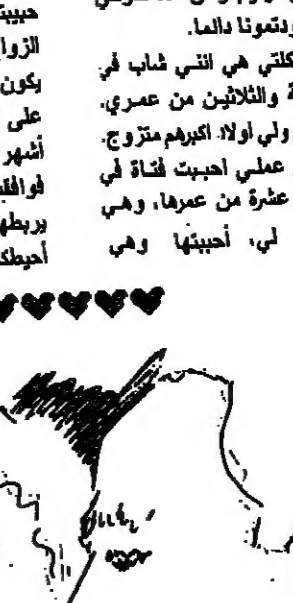 ودتمونا دائما.
كلتي هي انني شاب في
ة والثلاثين من عمري.
ولي اولاد اكبرهم متزوج.
عملي احببت فتاة في
عشرة من عمرها، وهي
لي، أحببتها وهي
حبيبت
الزواج
يكون
على
أشهر
فوافقت
يربطها
أحيطك